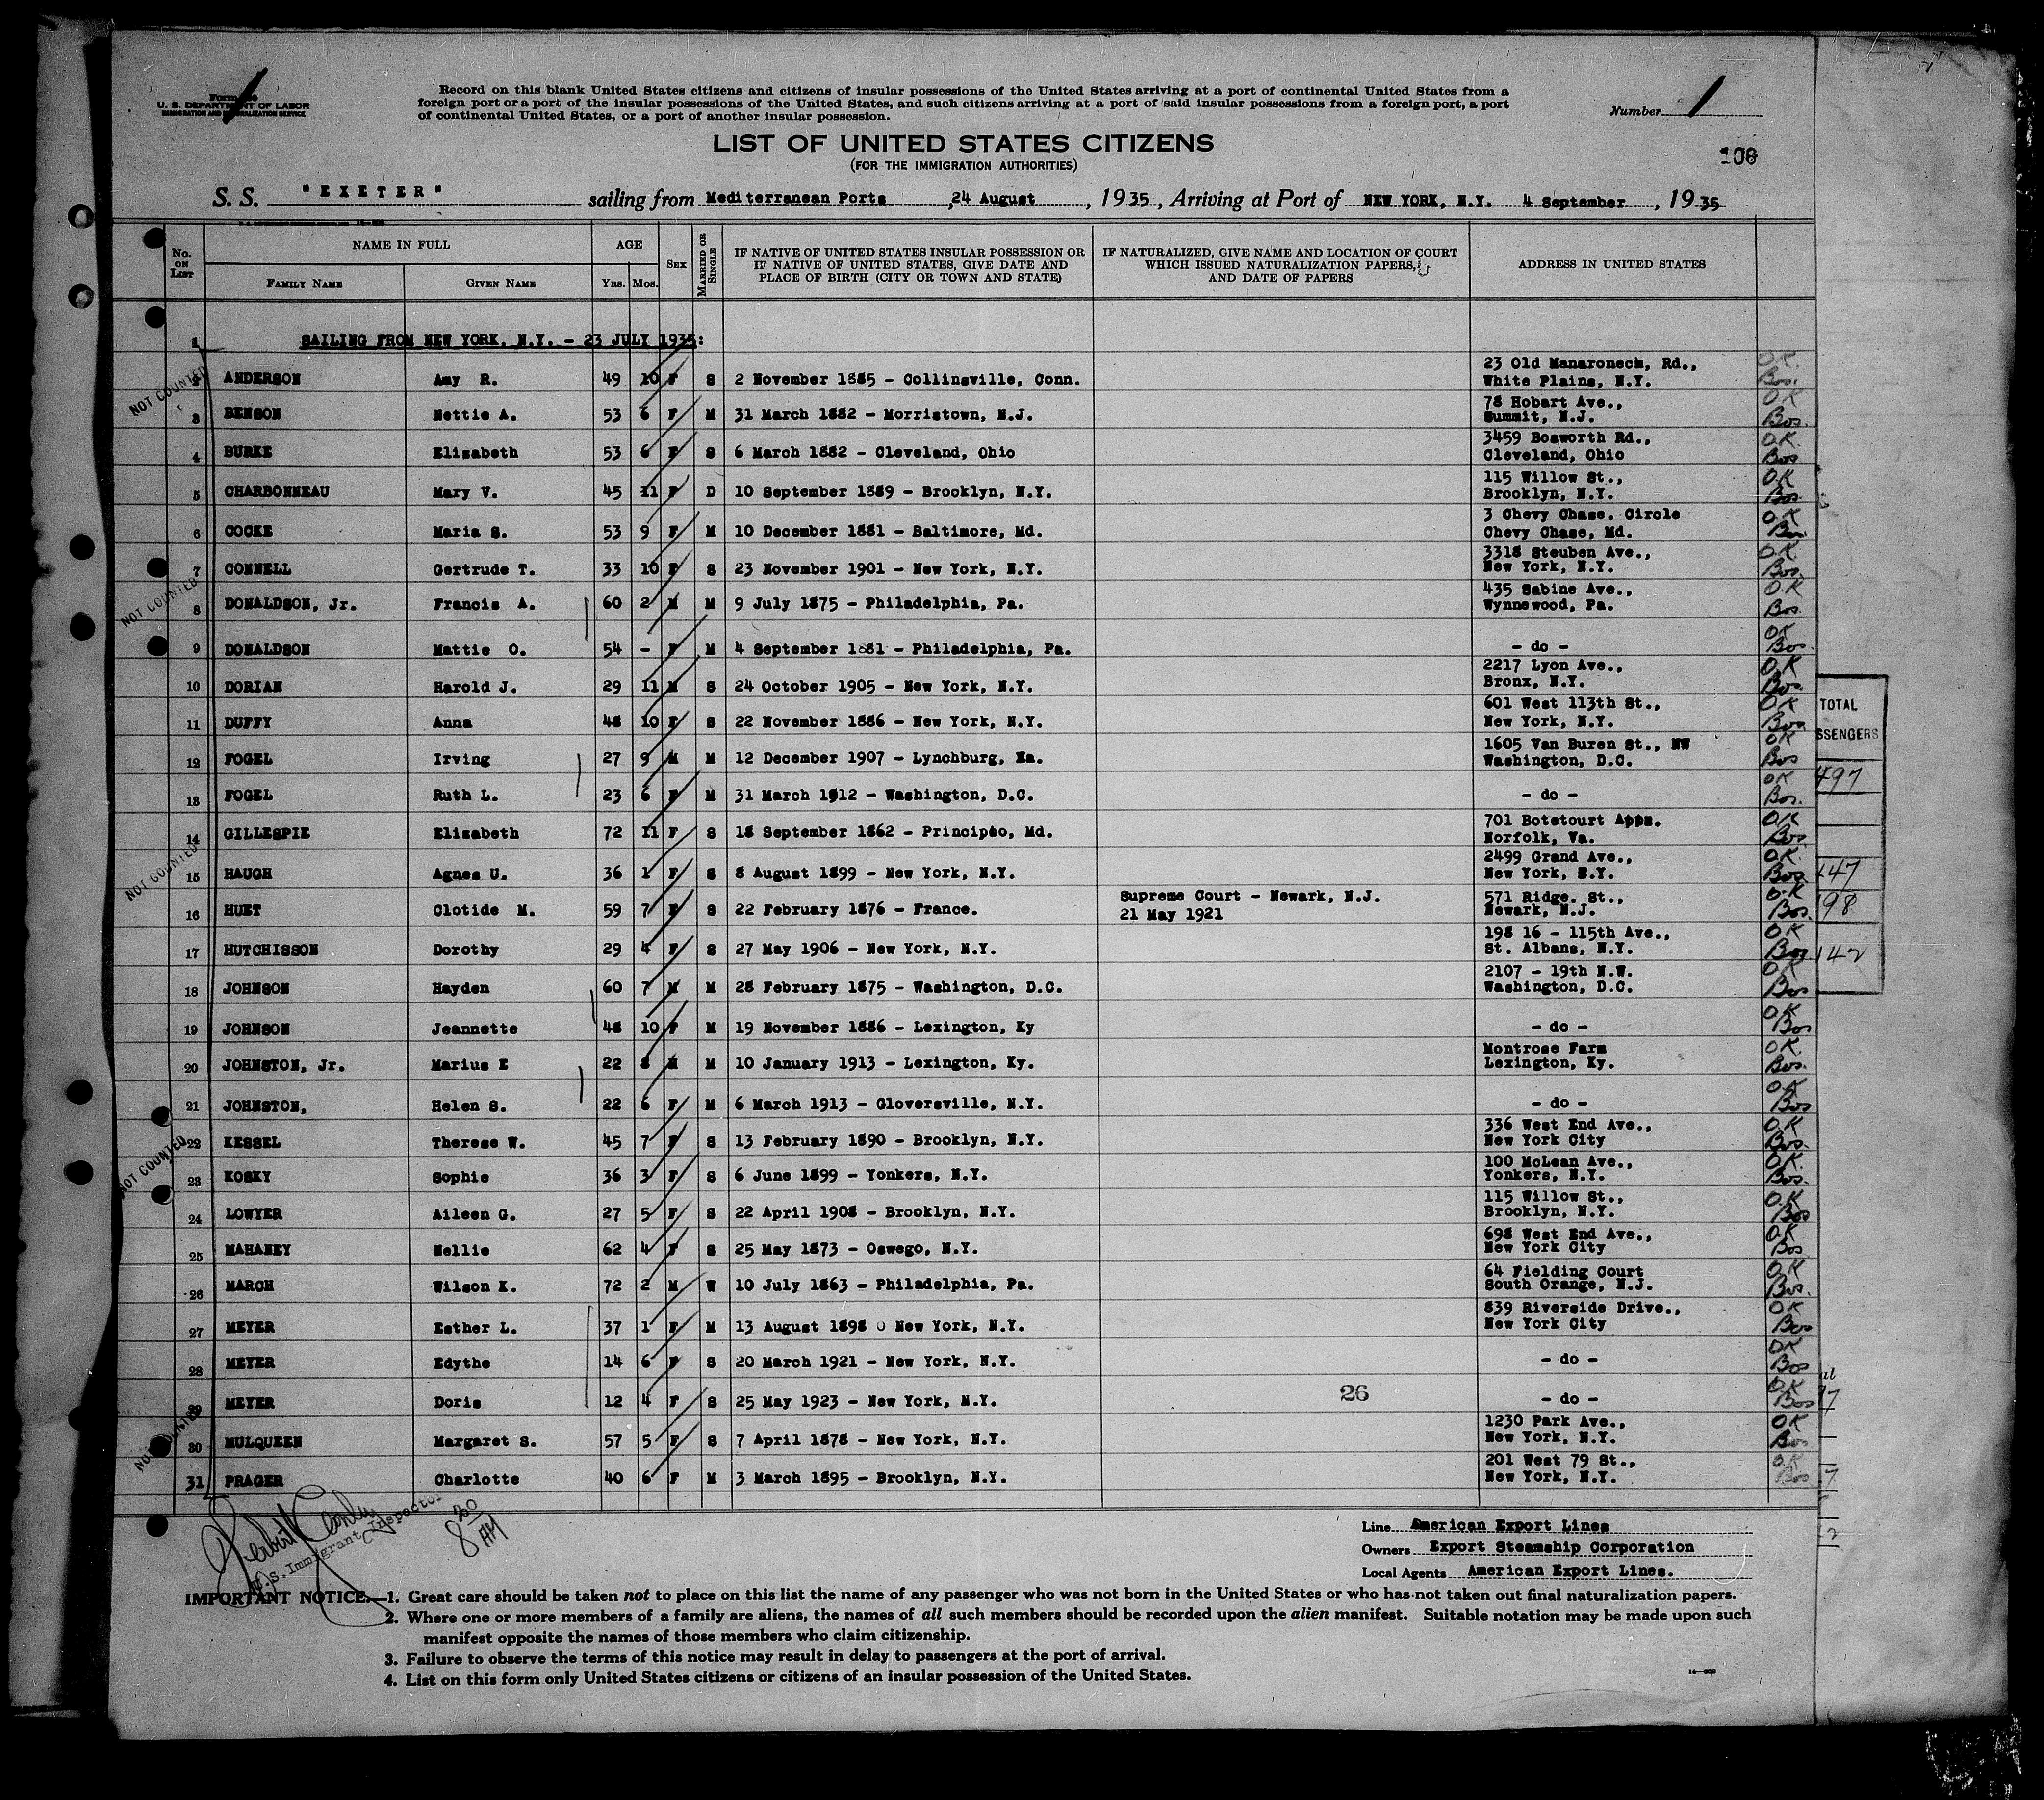 Form
U. S. DEPARTMENT OF LABOR
IMMIGRATION AND NATURALIZATION SERVICE
Record on this blank United States citizens and citizens of insular possessions of the United States arriving at a port of continental United States from a
foreign port or a port of the insular possessions of the United States, and such citizens arriving at a port of said insular possessions from a foreign port, a port
of continental United States, or a port of another insular possession.
Number 1
LIST OF UNITED STATES CITIZENS
(FOR THE IMMIGRATION AUTHORITIES)
108
S. S. "EXETER" sailing from Mediterranean Ports, 24 August, 1935, Arriving at Port of NEW YORK, N.Y. 4 September, 1935
No. ON LIST
NAME IN FULL
FAMILY NAME
GIVEN NAME
AGE
YRS. MOS.
SEX
MARRIED OR SINGLE
IF NATIVE OF UNITED STATES INSULAR POSSESSION OR
IF NATIVE OF UNITED STATES, GIVE DATE AND
PLACE OF BIRTH (CITY OR TOWN AND STATE)
IF NATURALIZED, GIVE NAME AND LOCATION OF COURT
WHICH ISSUED NATURALIZATION PAPERS,
AND DATE OF PAPERS
ADDRESS IN UNITED STATES
1 SAILING FROM NEW YORK, N.Y. - 23 JULY 1935:
ANDERSON Amy R. 49 10 F S 2 November 1885 - Collinsville, Conn. 23 Old Manaronech, Rd., White Plains, N.Y. OK Bos.
3 BENSON Nettie A. 53 6 F M 31 March 1882 - Morristown, N.J. 78 Hobart Ave., Summit, N.J. OK Bos.
4 BURKE Elizabeth 53 6 F S 6 March 1882 - Cleveland, Ohio 3459 Bosworth Rd., Cleveland, Ohio OK Bos
5 CHARBONNEAU Mary V. 45 11 F D 10 September 1889 - Brooklyn, N.Y. 115 Willow St., Brooklyn, N.Y. OK Bos
6 COCKE Maria S. 53 9 F M 10 December 1881 - Baltimore, Md. 3 Chevy Chase. Circle Chevy Chase, Md. OK Bos
7 CONNELL Gertrude T. 33 10 F S 23 November 1901 - New York, N.Y. 3318 Steuben Ave., New York, N.Y. OK Bos
8 DONALDSON, Jr. Francis A. 60 2 M M 9 July 1875 - Philadelphia, Pa. 435 Sabine Ave., Wynnewood, Pa. OK Bos
9 DONALDSON Mattie O. 54 - F M 4 September 1881 - Philadelphia, Pa. - do - OK Bos
10 DORIAN Harold J. 29 11 M S 24 October 1905 - New York, N.Y. 2217 Lyon Ave., Bronx, N.Y. OK Bos
11 DUFFY Anna 48 10 F S 22 November 1886 - New York, N.Y. 601 West 113th St., New York, N.Y. OK Bos
12 FOGEL Irving 27 9 M M 12 December 1907 - Lynchburg, Va. 1605 Van Buren St., NW Washington, D.C. OK Bos
13 FOGEL Ruth L. 23 6 F M 31 March 1912 - Washington, D.C. - do - OK Bos.
14 GILLESPIE Elizabeth 72 11 F S 18 September 1862 - Principio, Md. 701 Botetourt Apps. Norfolk, Va. OK Bos
15 HAUGH Agnes U. 36 1 F S 8 August 1899 - New York, N.Y. 2499 Grand Ave., New York, N.Y. OK Bos
16 HUET Clotide M. 59 7 F S 22 February 1876 - France. Supreme Court - Newark, N.J. 21 May 1921 571 Ridge. St., Newark, N.J. OK Bos.
17 HUTCHISSON Dorothy 29 4 F S 27 May 1906 - New York, N.Y. 198 16 - 115th Ave., St. Albans, N.Y. OK Bos
18 JOHNSON Hayden 60 7 M M 28 February 1875 - Washington, D.C. 2107 - 19th N.W. Washington, D.C. OK Bos
19 JOHNSON Jeannette 48 10 F M 19 November 1886 - Lexington, Ky - do - OK Bos
20 JOHNSTON, Jr. Marius E 22 8 M M 10 January 1913 - Lexington, Ky. Montrose Farm Lexington, Ky. OK Bos.
21 JOHNSTON, Helen S. 22 6 F M 6 March 1913 - Gloversville, N.Y. - do - OK Bos
22 KESSEL Therese W. 45 7 F S 13 February 1890 - Brooklyn, N.Y. 336 West End Ave., New York City OK Bos.
23 KOSKY Sophie 36 3 F S 6 June 1899 - Yonkers, N.Y. 100 McLean Ave., Yonkers, N.Y. OK Bos.
24 LOWYER Aileen G. 27 5 F S 22 April 1908 - Brooklyn, N.Y. 115 Willow St., Brooklyn, N.Y. OK Bos
25 MAHANEY Nellie 62 4 F S 25 May 1873 - Oswego, N.Y. 698 West End Ave., New York City OK Bos
26 MARCH Wilson K. 72 2 M W 10 July 1863 - Philadelphia, Pa. 64 Fielding Court South Orange, N.J. OK Bos.
27 MEYER Esther L. 37 1 F M 13 August 1898 0 New York, N.Y. 839 Riverside Drive., New York City OK Bos
28 MEYER Edythe 14 6 F S 20 March 1921 - New York, N.Y. - do - OK Bos
29 MEYER Doris 12 4 F S 25 May 1923 - New York, N.Y. 26 - do - OK Bos
30 MULQUEEN Margaret S. 57 5 F S 7 April 1878 - New York, N.Y. 1230 Park Ave., New York, N.Y. OK Bos
31 PRAGER Charlotte 40 6 F M 3 March 1895 - Brooklyn, N.Y. 201 West 79 St., New York, N.Y. OK Bos
NOT COUNTED
NOT COUNTED
NOT COUNTED
NOT COUNTED
NOT COUNTED
TOTAL
SSENGERS
497
147
198
142
U.S. Immigrant Inspector
8 20 AM
Line American Export Lines
Owners Export Steamship Corporation
Local Agents American Export Lines.
IMPORTANT NOTICE.—1. Great care should be taken not to place on this list the name of any passenger who was not born in the United States or who has not taken out final naturalization papers.
2. Where one or more members of a family are aliens, the names of all such members should be recorded upon the alien manifest. Suitable notation may be made upon such
manifest opposite the names of those members who claim citizenship.
3. Failure to observe the terms of this notice may result in delay to passengers at the port of arrival.
4. List on this form only United States citizens or citizens of an insular possession of the United States.